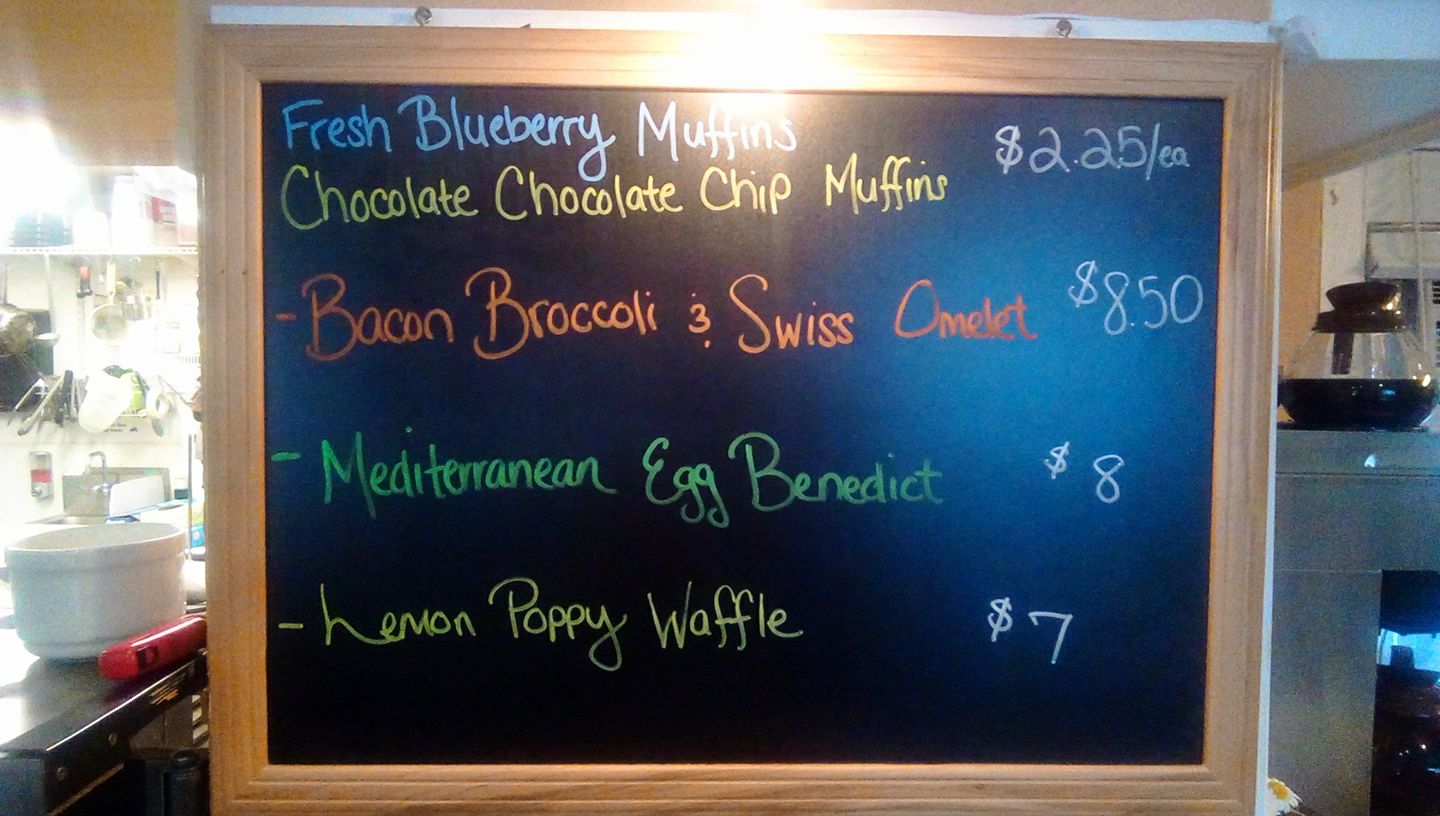 Fresh Blueberry Muffins $2.25/ea
Chocolate Chocolate Chip Muffins
- Bacon Broccoli & Swiss Omelet $8.50
- Mediterranean Egg Benedict $8
- Lemon Poppy Waffle $7